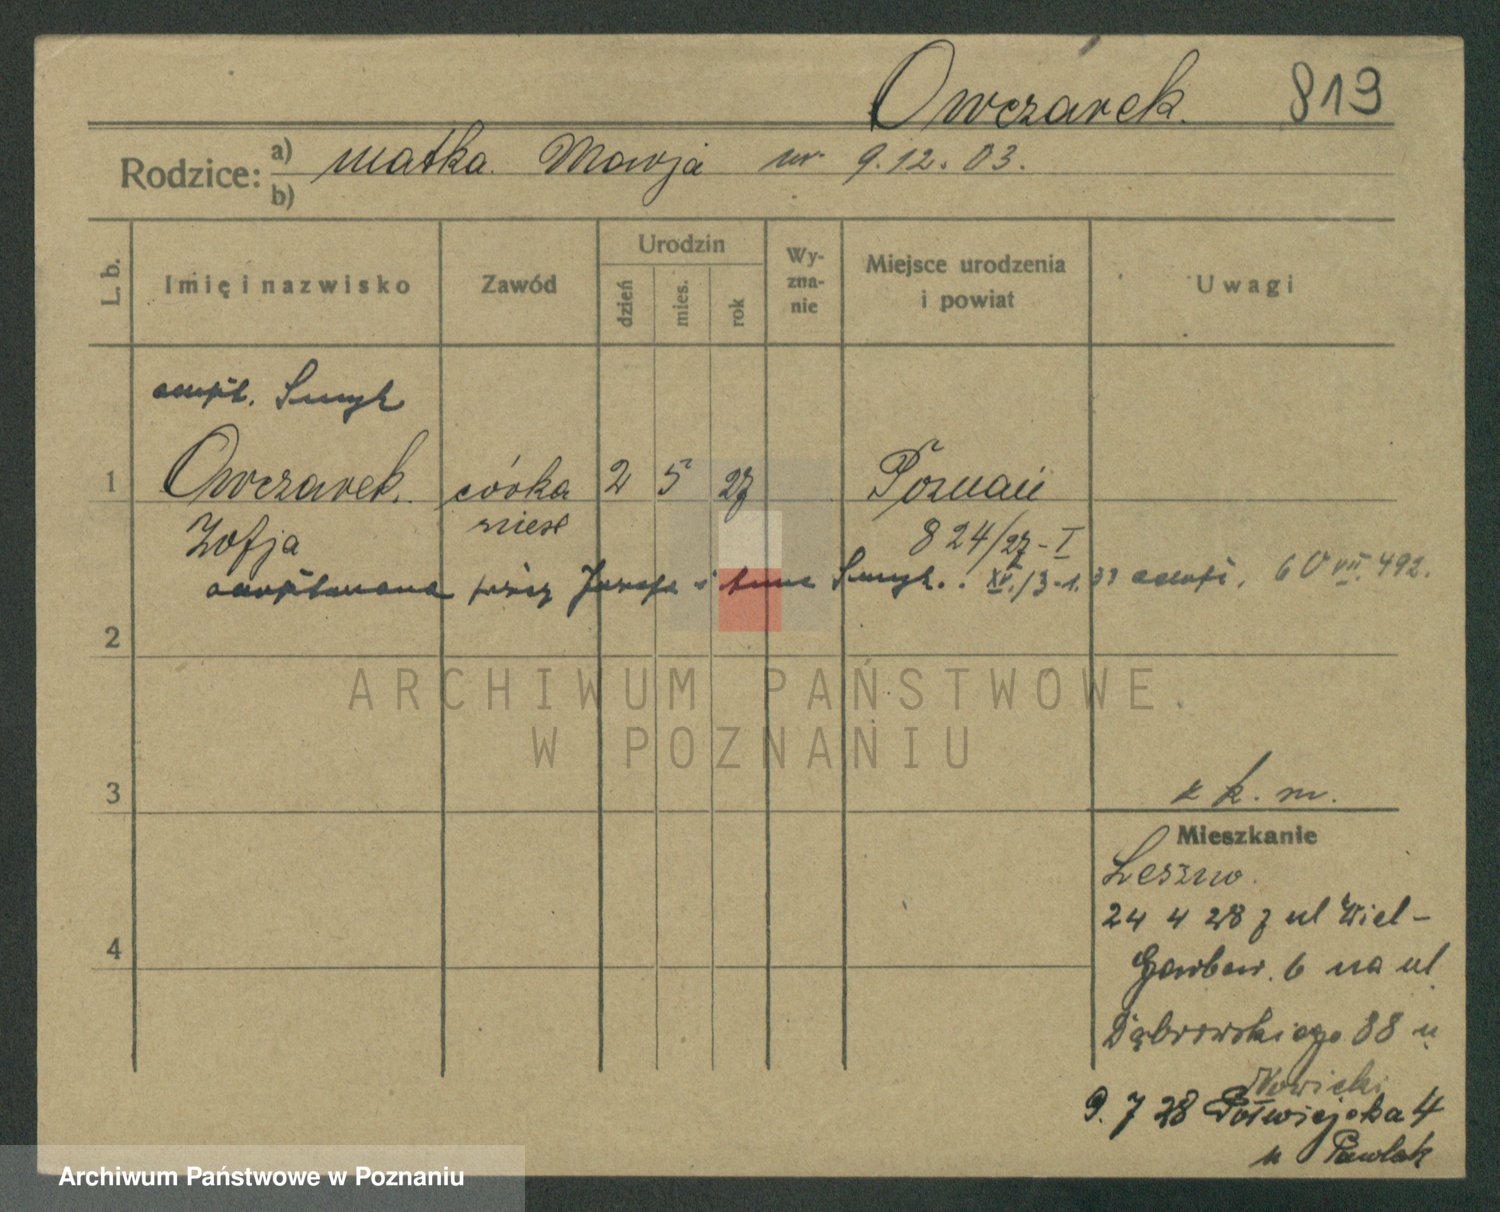 Owczarek. 819
Rodzice: a) matka. Marja ur. 9.12.03.
b)
L. b.
Imię i nazwisko
Zawód
Urodzin
dzień
mies.
rok
Wy-
zna-
nie
Miejsce urodzenia
i powiat
Uwagi
adopt. Smyk
1 Owczarek. córka 2 5 27 Poznań
Zofja nieśl 824/27-I
adoptowana przez Józefa i Smyk.
2
ARCHIWUM PAŃSTWOWE
W POZNANIU
3
k. m.
Mieszkanie
Leszno.
24 4 28 z ul Wiel-
4
Garbar. 6 na ul
Dąbrowskiego 88 u
Nowicki
9. 7 28 Półwiejska 4
u Pawlak
Archiwum Państwowe w Poznaniu